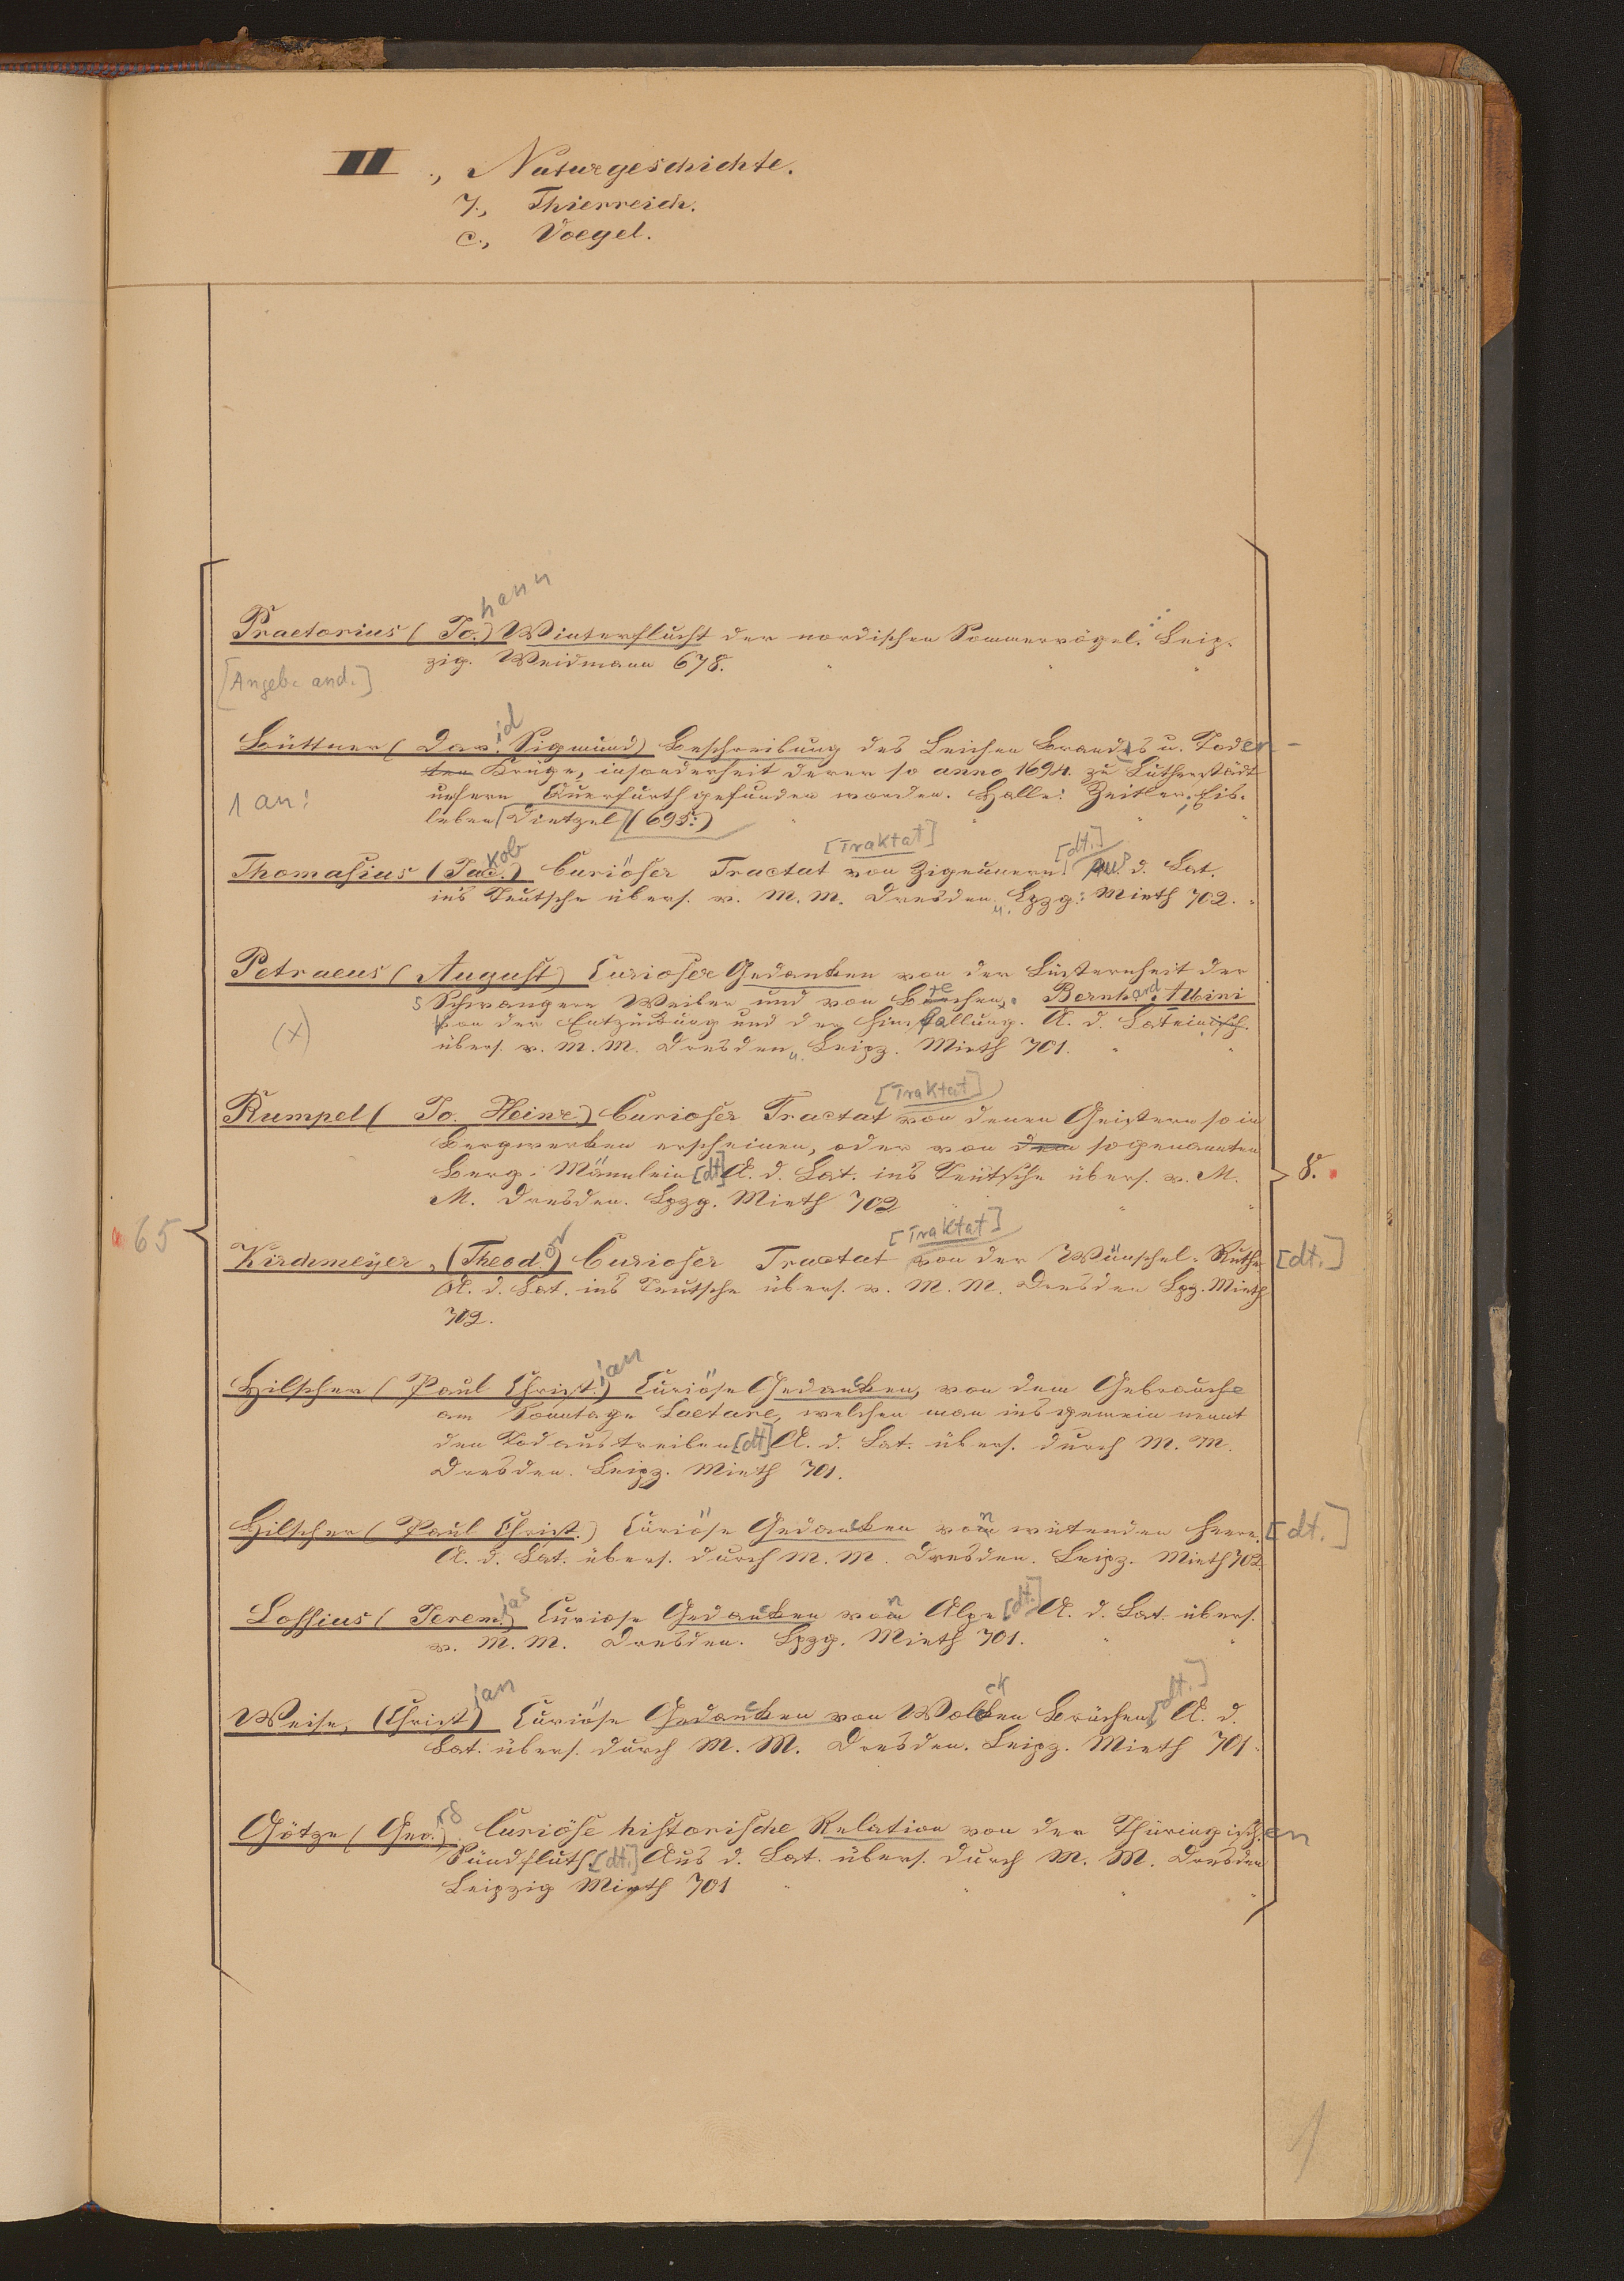 II., Naturgeschichte.
7., Thierreich.
c., Voegel.
Praetorius (Jo.hann) Winterflucht der nordischen Sommervögel. Leip-
zig. Weidmann 678. " " "
[Angeb. and.]
Büttner (David Sigmund) Beschreibung des Leichen Brandes u. Toder-
ten Krüge, insonderheit derer so anno 1694. zu Lutherstädt
unsern Querfurth gefunden worden. Halle: Zeitler, Eis-
1 an:
leben [Dietzel] (695.) " " " "
[Traktat] [dt.]
Thomasius (Jacob.) Curiöser Tractat von Zigeunern aus d. Lat.
ins Teutsche übers. v. M. M. Dresden u. Lpzg: Mieth 702. "
Petraeus (August) Curiose Gedanken von der Lüsternheit der
Schwangern Weiber und von Bernhard Albini
(x)
von der Entzückung und der Einfallung. A. d. Lateinisch.
übers. v. M. M. Dresden u. Leipz. Mieth 701. " "
[Traktat]
Rumpel (Jo. Heinr.) Curioser Tractat von denen Geistern so in
Bergwerken erscheinen, oder von dem sogenannten
Berg-Männlein [dt] A. d. Lat. ins Teütsche übers. v. M.
8.
M. Dresden. Lpzg. Mieth 702 " " "
65
[Traktat]
Kirchmeyer, (Theodor) Curioser Tractat von der Wünschel-Ruthe [dt.]
A. d. Lat. ins Teutsche übers. v. M. M. Dresden Lpg. Mieth
702.
Hilscher (Paul Christian) Curiöse Gedancken, von dem Gebrauche
am Sonntage Laetare, welchen man ins gemein nennt
den Tod austreiben [dt] A. d. Lat. übers. durch M. M.
Dresden. Leipz. Mieth 701.
Hilscher (Paul Christ.) Curiöse Gedancken von wütenden Heere. [dt.]
A. d. Lat. übers. durch M. M. Dresden. Leipz. Mieth 702.
Lossius (Jeremias) Curiose Gedancken von Alpe [dt.] A. d. Lat. übers.
v. M. M. Dresden. Lpzg. Mieth 701. " "
Weise, (Christian) Curiöse Gedancken von Wolcken Brüchen [dt.] A. d.
Lat. übers. durch M. M. Dresden. Leipz. Mieth 701.
Götze (Georg) Curiöse historische Relation von der Thüringischen
Sündfluth. [dt.] Aus d. Lat. übers. durch M. M. Dresden
Leipzig Mieth 701 " " " "
1